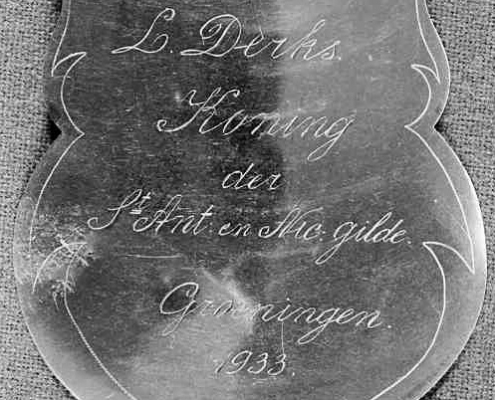 L. Derks.
Koning
der
St. Ant. en Nic. gilde.
Groeningen.
1933.